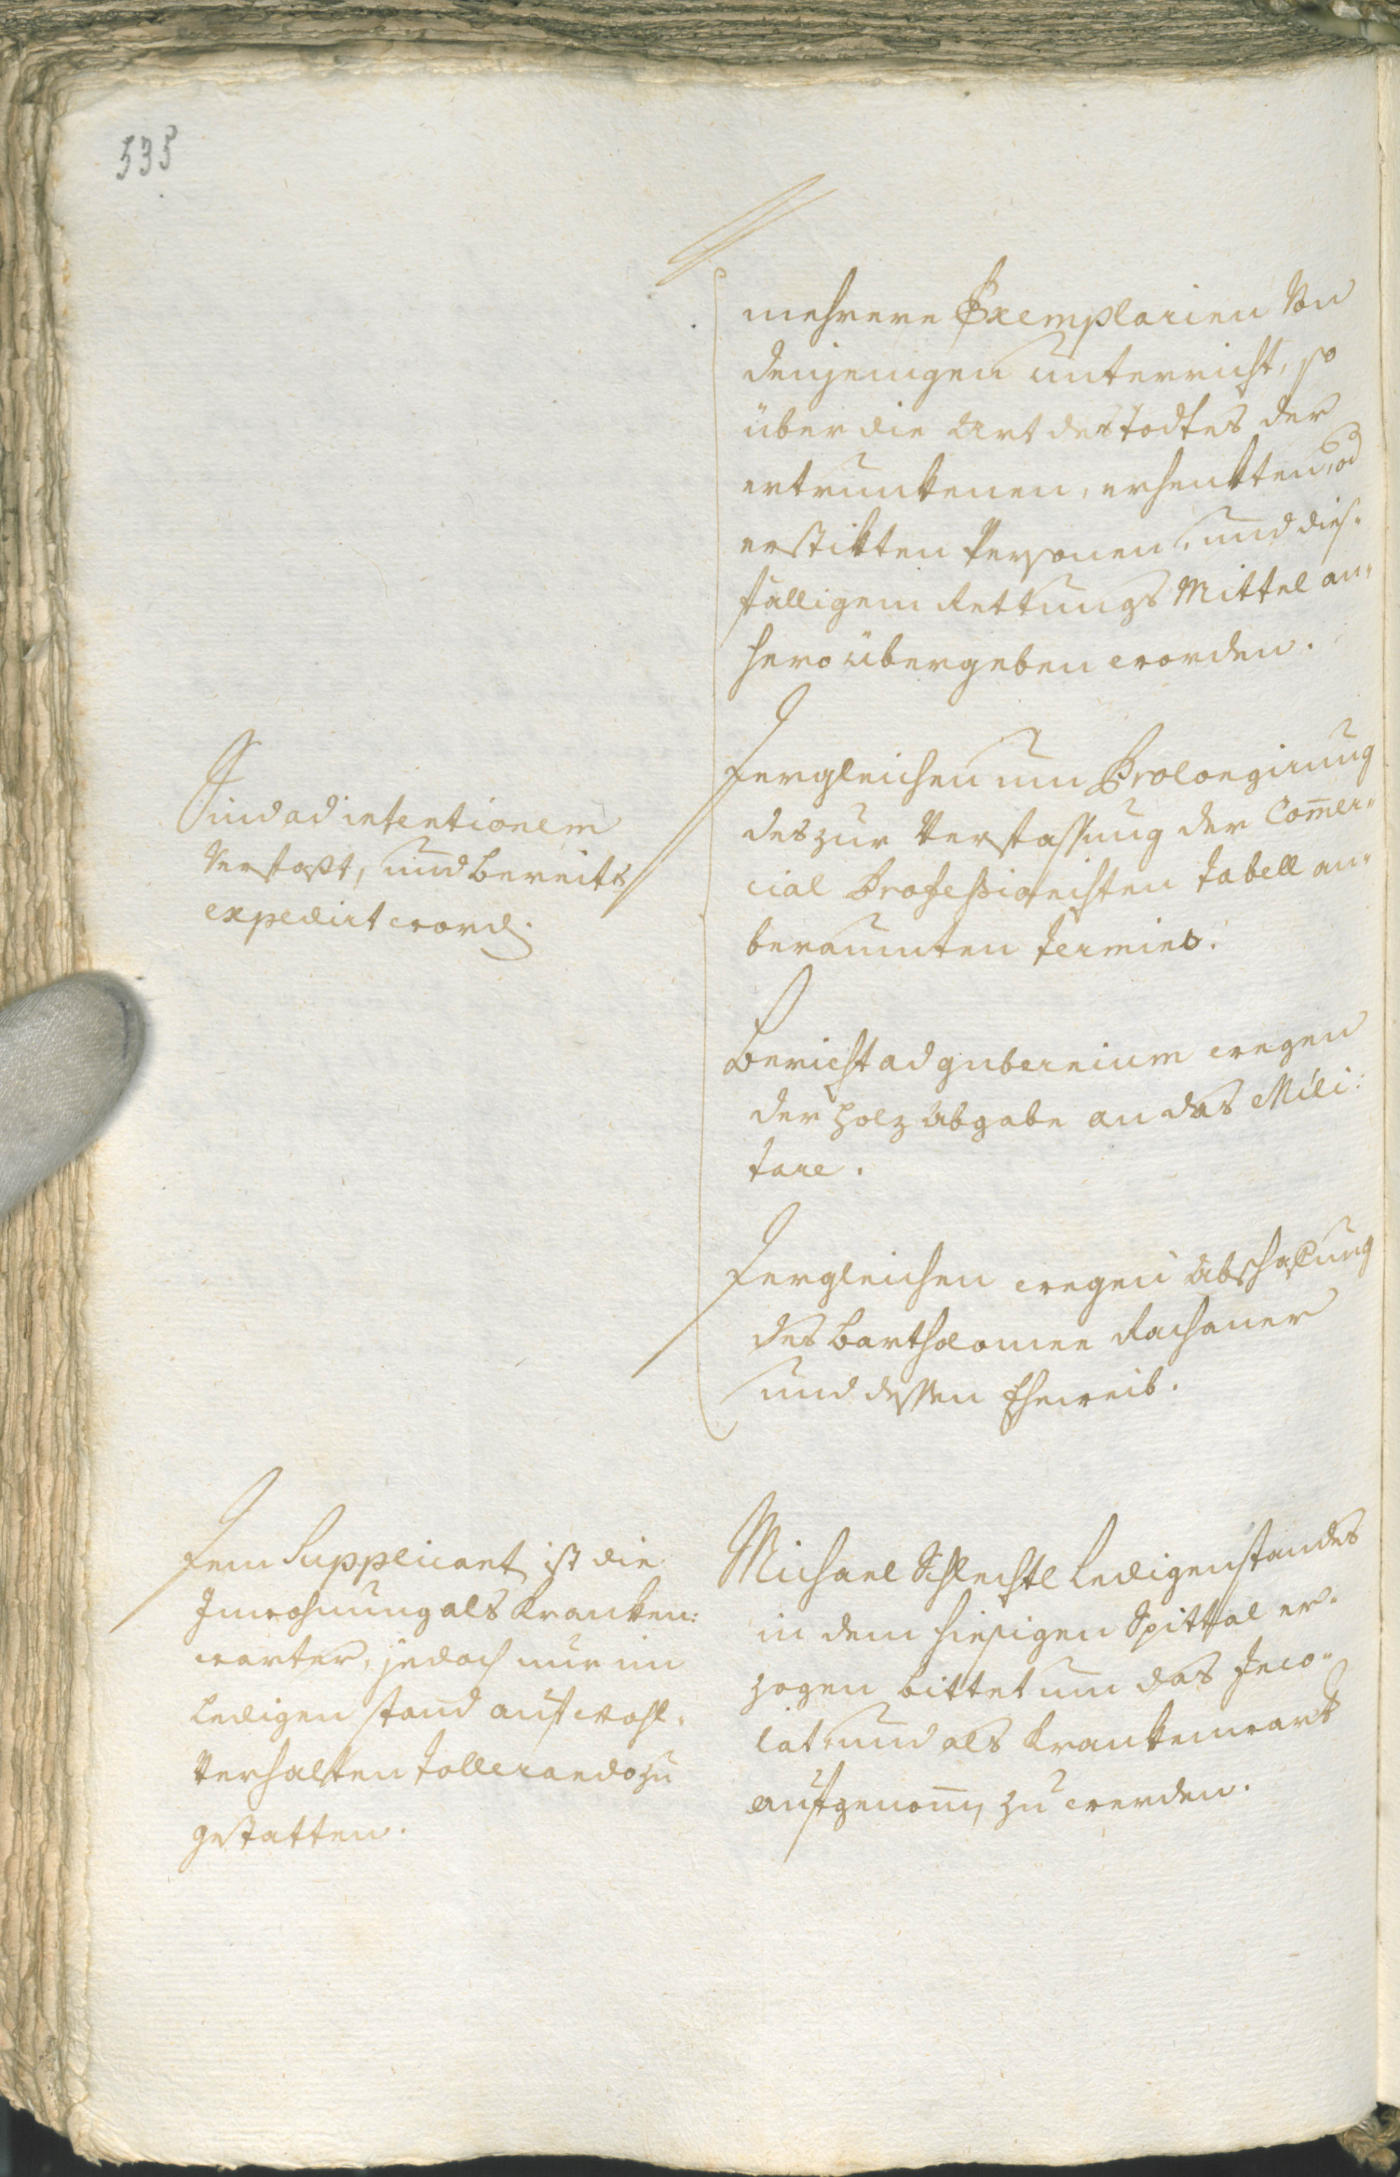 535
mehrere Exemplarien von
denjenigen unterricht, so
über die Art des Todtes der
ertrunkenen, erhenkten, od
erstikten Personen, und dies-
fälligem Rettungs Mittel an-
hero übergeben worden.
Sind ad intentionem
Verfaßt, und bereits
expedirt word.
Dergleichen um Prolongirung
des zur Verfassung der Com̅er-
cial Profeßionisten Tabell an-
beraumten Termins.
Bericht ad gubernium wegen
der Holz Abgabe an das Mili-
tare.
Dergleichen wegen Abschafung
des Bartholomee Rachauer
und dessen Eheweib.
Dem Supplicant ist die
Inwohnung als Kranken-
warter, jedoch nur im
Ledigen stand auf wohl-
Verhalten Tollerando zu
gestatten.
Michael Schlechtl Ledigenstandes
in dem hiesigen Spittal er-
zogen bittet um das Inco-
lat, und als Krankenwart
aufgenom̅ zu werden.